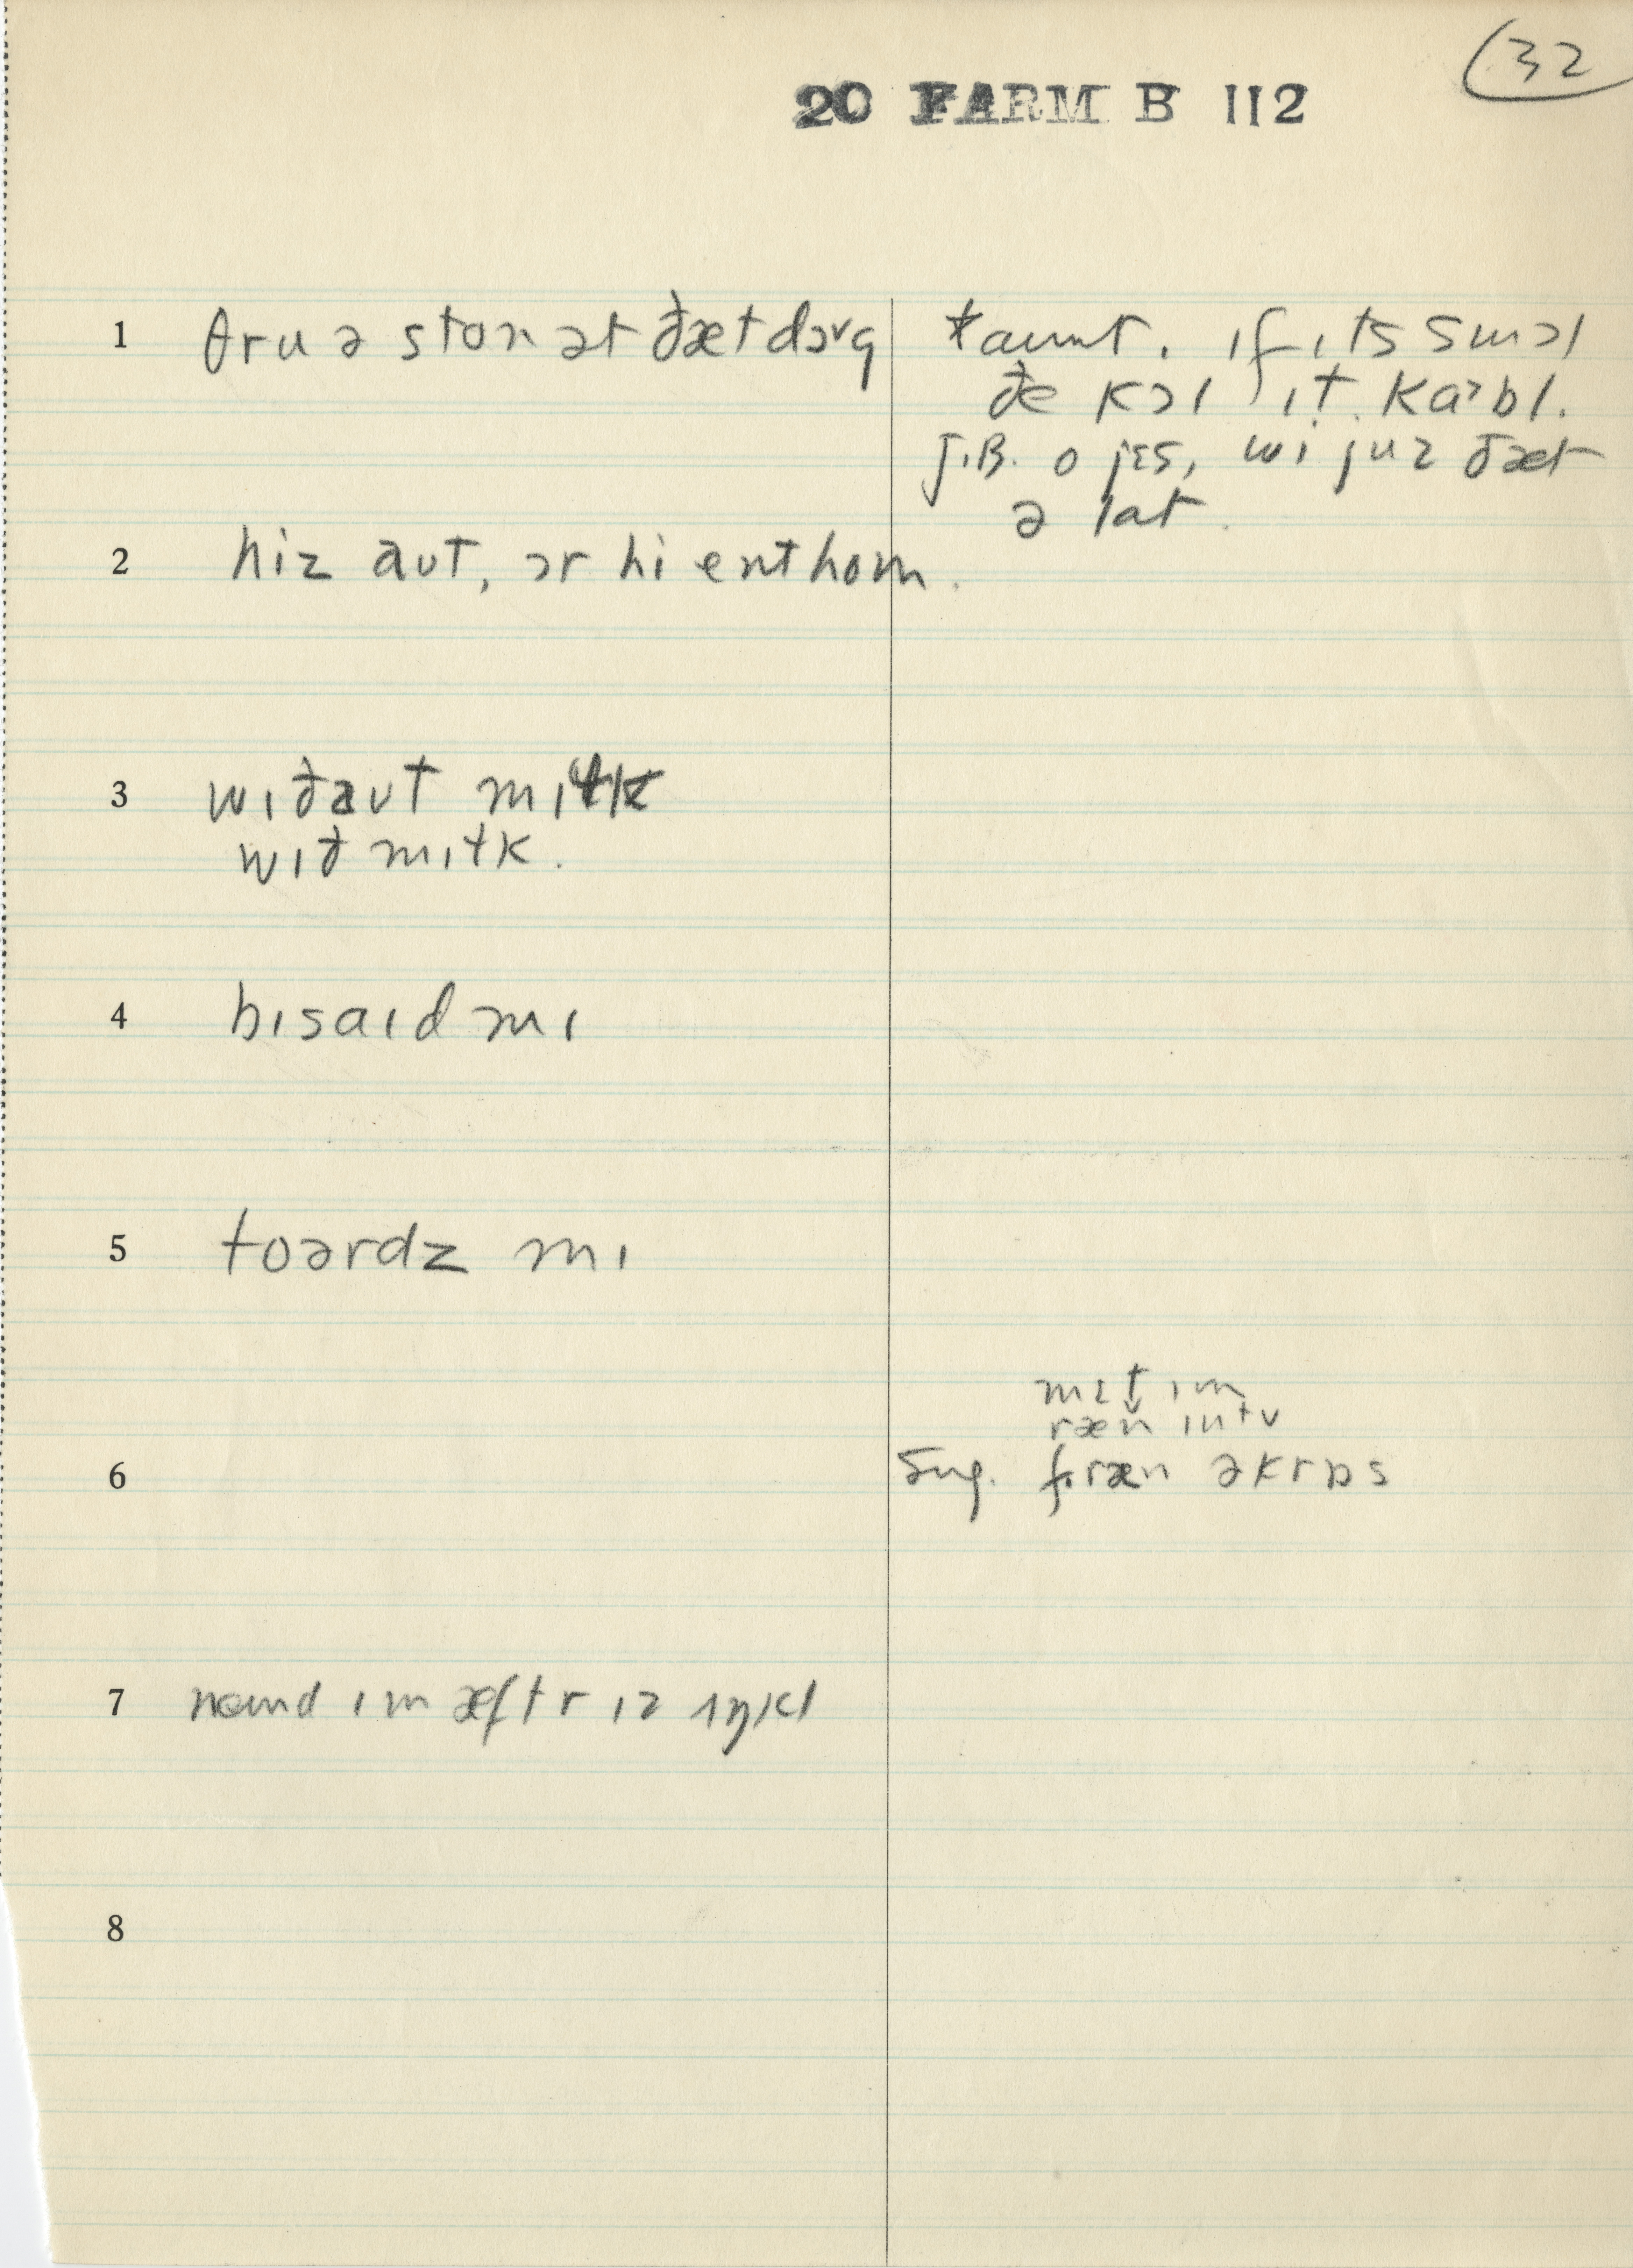 32
20 FARM B 112
1 θru ə ston ət ðæt dɔᵛg
taunt. ɪf ɪts smɔl
ðe kɔl ɪt kaᵊbl.
J.B. o jɛs, wi juz ðæt
ə lat.
2 hiz aʊt, ɔr hi ent hom.
3 wɪðaʊt mɪɫk
wɪð mɪɫk.
4 bɪsaɪd mɪ
5 toərdz mɪ
mɛt ɪm
ræn ɪntʊ
6 Sug. f. ræn əkrɒs
7 nemd ɪm æftr ɪz ʌŋkl
8